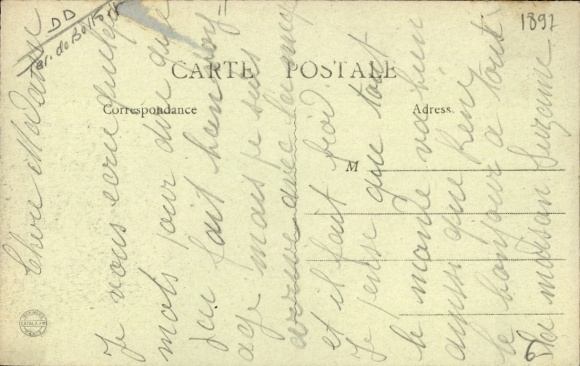 DD
Ter. de Belfort
1897
CARTE POSTALE
Correspondance
Adress.
M
Chère Madame
Je vous écris quelques
mots pour dire que
j'ai fait bon voy"
age mais je suis
arrivée avec la
et il fait froid
Je pense que tout
le monde va bien
ainsi que René
le bonjour à tout
la maison Suzanne
6